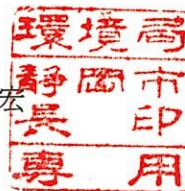 環境局
静岡市
宏
長印
専用